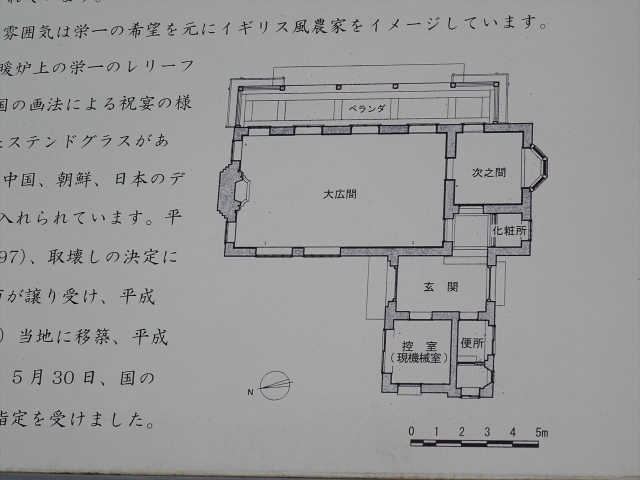 れています。
雰囲気は栄一の希望を元にイギリス風農家をイメージしています。
暖炉上の栄一のレリーフ
国の画法による祝宴の様
ステンドグラスがあ
中国、朝鮮、日本のデ
入れられています。平
97)、取壊しの決定に
が譲り受け、平成
) 当地に移築、平成
5月30日、国の
指定を受けました。
ベランダ
大広間
次之間
化粧所
玄関
控室
(現機械室)
便所
N
0 1 2 3 4 5m